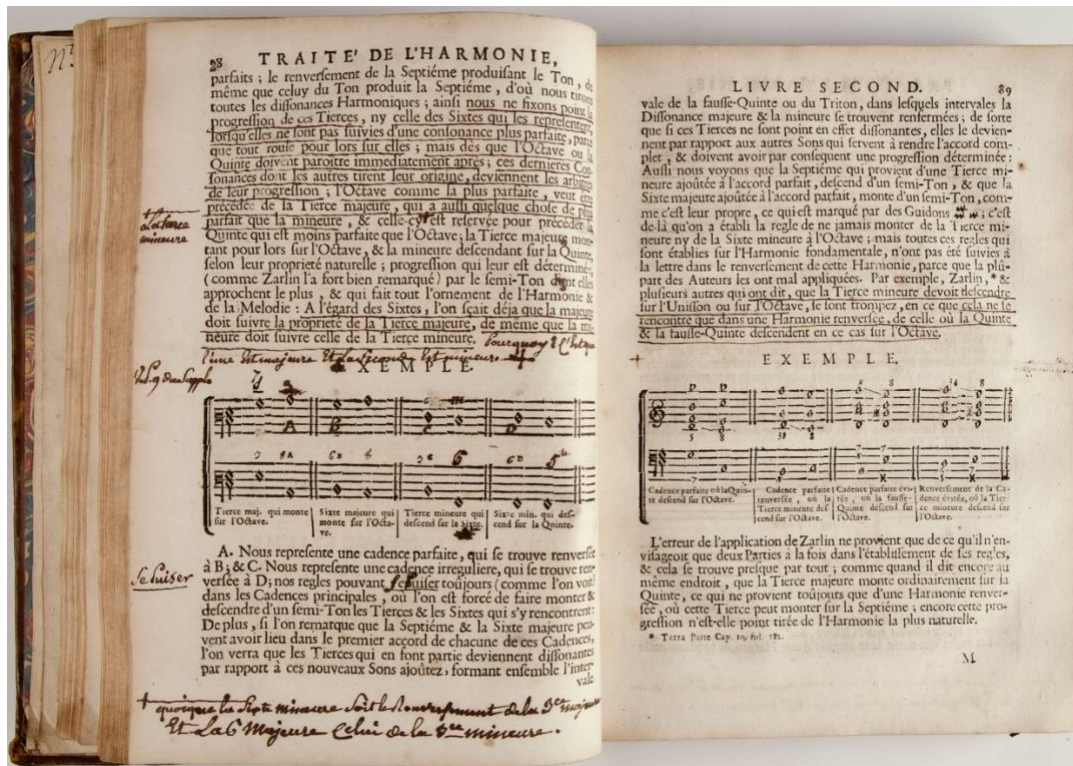 88 TRAITE' DE L'HARMONIE,
parfaits ; le renversement de la Septiéme produisant le Ton, de
même que celuy du Ton produit la Septiéme, d'où nous tirons
toutes les dissonances Harmoniques ; ainsi nous ne fixons point la
progression de ces Tierces, ny celle des Sixtes qui les representent,
lorsqu'elles ne sont pas suivies d'une consonance plus parfaite, parce
que tout roule pour lors sur elles ; mais dès que l'Octave ou la
Quinte doivent paroître immediatement aprés ; ces dernieres Con-
sonances dont les autres tirent leur origine, deviennent les arbitres
de leur progression ; l'Octave comme la plus parfaite, veut être
précédée de la Tierce majeure, qui a aussi quelque chose de plus
parfait que la mineure, & celle-cy est reservée pour précéder la
Quinte qui est moins parfaite que l'Octave ; la Tierce majeure mon-
tant pour lors sur l'Octave, & la mineure descendant sur la Quinte,
selon leur proprieté naturelle ; progression qui leur est déterminée,
(comme Zarlin l'a fort bien remarqué) par le semi-Ton dont elles
approchent le plus, & qui fait tout l'ornement de l'Harmonie &
de la Melodie : A l'égard des Sixtes, l'on sçait déja que la majeure
doit suivre la proprieté de la Tierce majeure, de même que la mi-
neure doit suivre celle de la Tierce mineure. pourquoy
mineure
l'une Est majeure Et la seconde Est mineure
EXEMPLE.
A B C D
Tierce maj. qui monte sur l'Octave.
Sixte majeure qui monte sur l'Octave.
Tierce mineure qui descend sur la Sixte.
Sixte min. qui descend sur la Quinte.
A. Nous represente une cadence parfaite, qui se trouve renversée
à B ; & C. Nous represente une cadence irreguliere, qui se trouve ren-
versée à D ; nos regles pouvant se puiser toûjours (comme l'on voit)
Se puiser
dans les Cadences principales, où l'on est forcé de faire monter &
descendre d'un semi-Ton les Tierces & les Sixtes qui s'y rencontrent:
De plus, si l'on remarque que la Septiéme & la Sixte majeure peu-
vent avoir lieu dans le premier accord de chacune de ces Cadences,
l'on verra que les Tierces qui en font partie deviennent dissonantes
par rapport à ces nouveaux Sons ajoûtez, formant ensemble l'inter-
vale
+ quoique la Sixte mineure soit le Renversement de la 3ce majeure
Et La 6 Majeure Celui de la 3ce mineure.
LIVRE SECOND. 89
vale de la fausse-Quinte ou du Triton, dans lesquels intervales la
Dissonance majeure & la mineure se trouvent renfermées ; de sorte
que si ces Tierces ne sont point en effet dissonantes, elles le devien-
nent par rapport aux autres Sons qui servent à rendre l'accord com-
plet, & doivent avoir par consequent une progression déterminée :
Aussi nous voyons que la Septiéme qui provient d'une Tierce mi-
neure ajoûtée à l'accord parfait, descend d'un semi-Ton, & que la
Sixte majeure ajoûtée à l'accord parfait, monte d'un semi-Ton, com-
me c'est leur propre, ce qui est marqué par des Guidons ; c'est
de-là qu'on a établi la regle de ne jamais monter de la Tierce mi-
neure ny de la Sixte mineure à l'Octave ; mais toutes ces regles qui
sont établies sur l'Harmonie fondamentale, n'ont pas été suivies à
la lettre dans le renversement de cette Harmonie, parce que la plû-
part des Auteurs les ont mal appliquées. Par exemple, Zarlin, * &
plusieurs autres qui ont dit, que la Tierce mineure devoit descendre
sur l'Unisson ou sur l'Octave, se sont trompez, en ce que cela ne se
rencontre que dans une Harmonie renversée, de celle où la Quinte
& la fausse-Quinte descendent en ce cas sur l'Octave.
EXEMPLE.
Cadence parfaite où la Quinte descend sur l'Octave.
Cadence parfaite renversée, où la Tierce mineure descend sur l'Octave.
Cadence parfaite évitée, où la fausse-Quinte descend sur l'Octave.
Renversement de la Cadence évitée, où la Tierce mineure descend sur l'Octave.
L'erreur de l'application de Zarlin ne provient que de ce qu'il n'en-
visageoit que deux Parties à la fois dans l'établissement de ses regles,
& cela se trouve presque par tout ; comme quand il dit encore au
même endroit, que la Tierce majeure monte ordinairement sur la
Quinte, ce qui ne provient toûjours que d'une Harmonie renver-
sée, où cette Tierce peut monter sur la Septiéme ; encore cette pro-
gression n'est-elle point tirée de l'Harmonie la plus naturelle.
* Terza Parte Cap. 10. fol. 182.
M